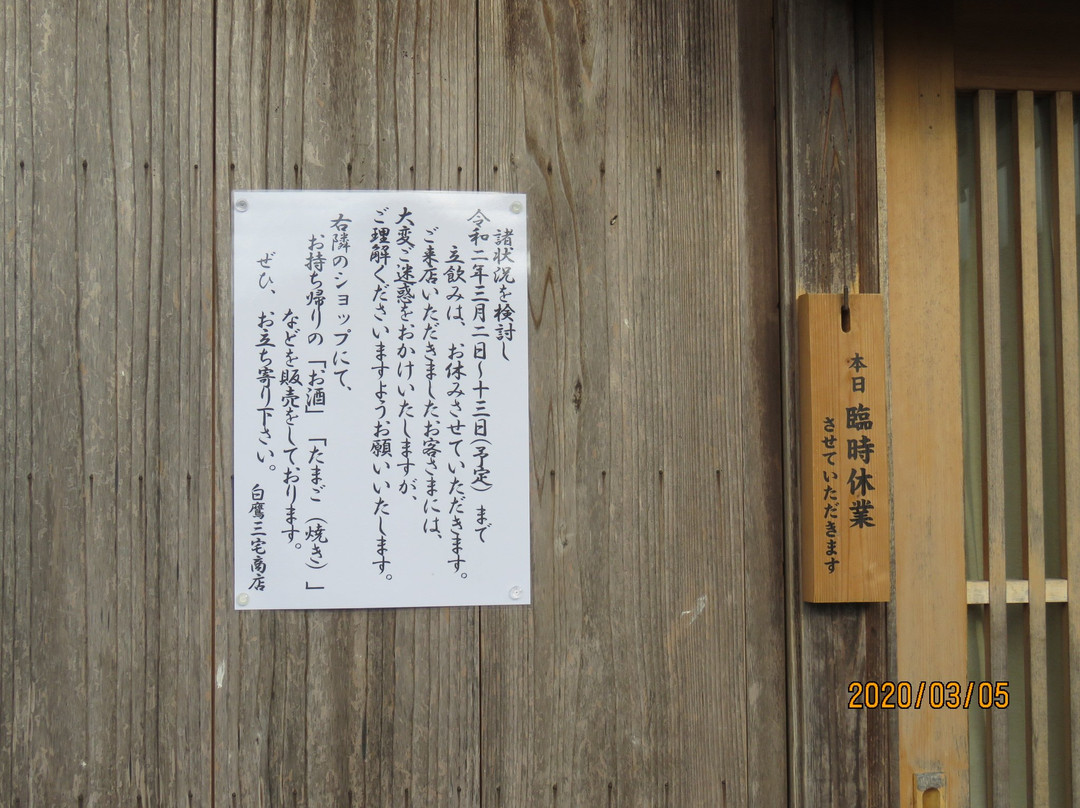 諸状況を検討し
令和二年三月二日～十三日(予定)まで
立飲みは、お休みさせていただきます。
ご来店いただきましたお客さまには、
大変ご迷惑をおかけいたしますが、
ご理解くださいますようお願いいたします。
右隣のショップにて、
お持ち帰りの「お酒」「たまご（焼き）」
などを販売をしております。
ぜひ、お立ち寄り下さい。
白鷹三宅商店
本日臨時休業
させていただきます
2020/03/05